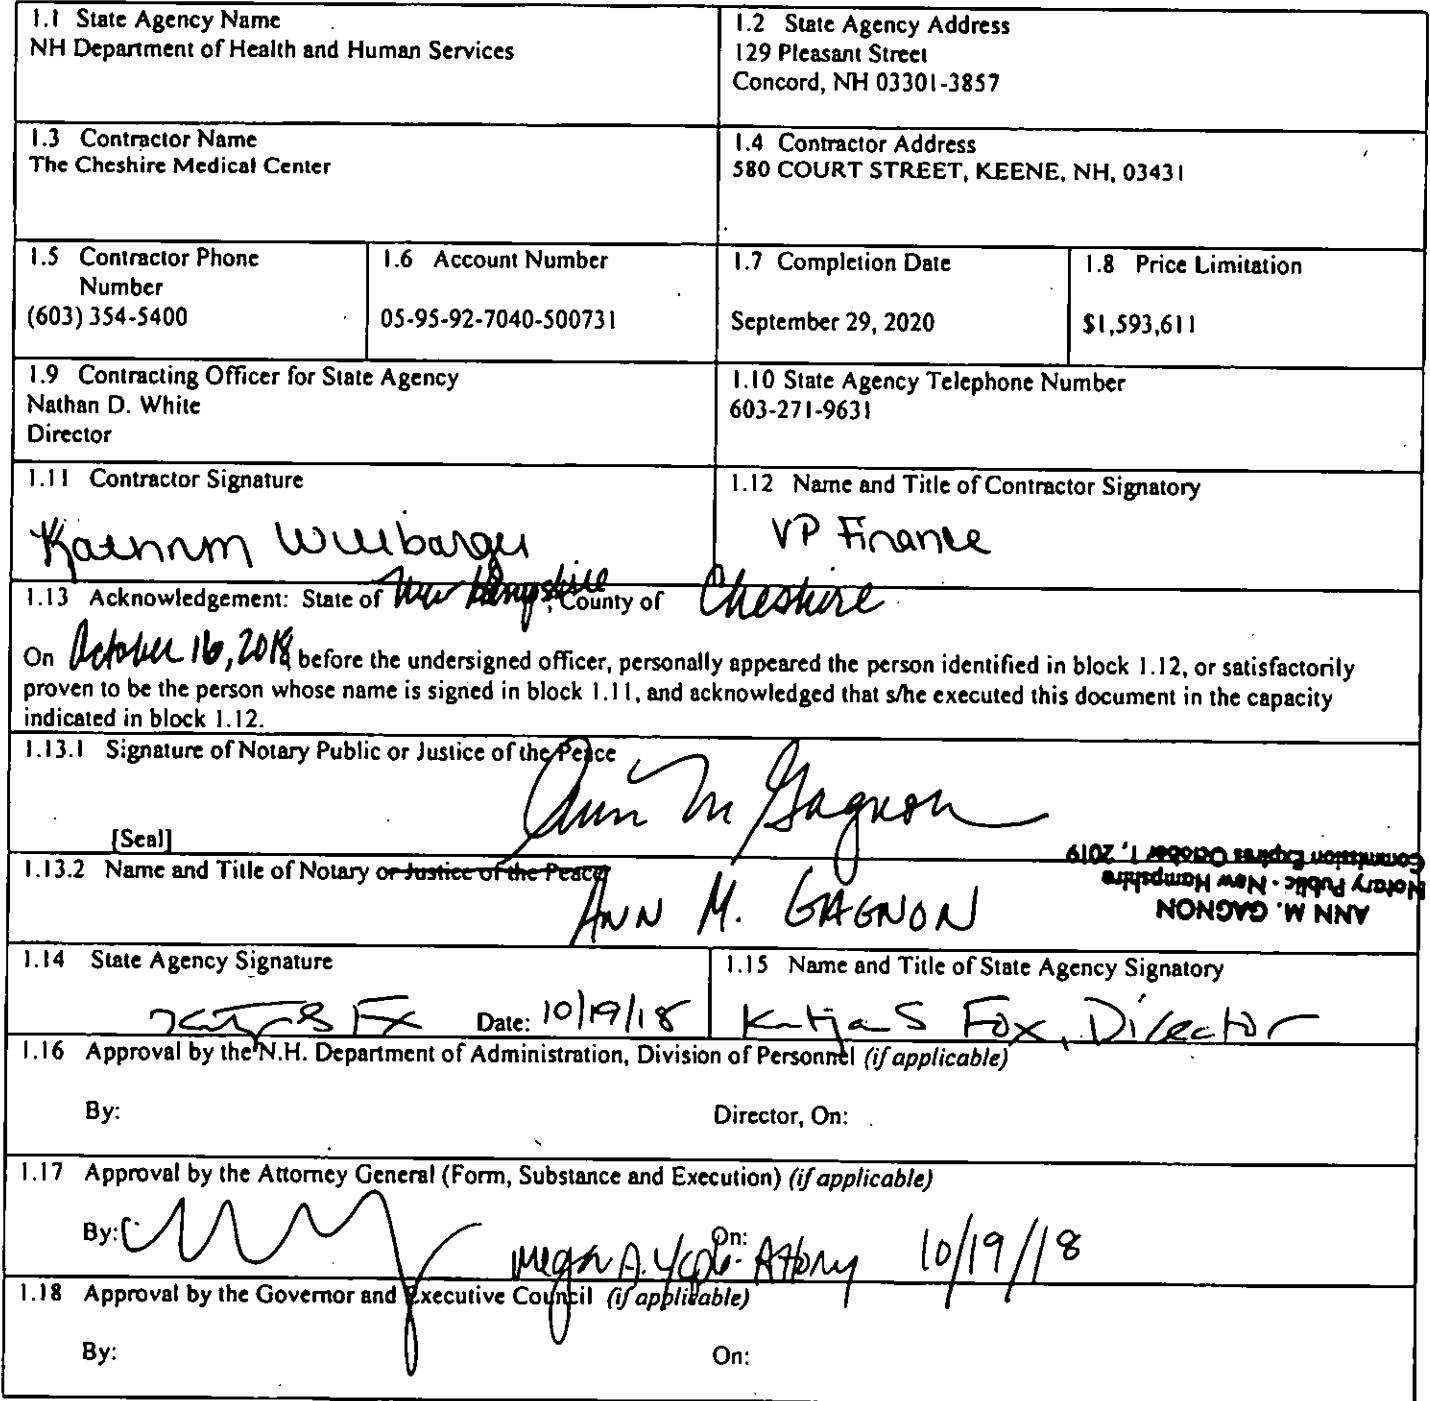 1.1 State Agency Name
NH Department of Health and Human Services
1.2 State Agency Address
129 Pleasant Street
Concord, NH 03301-3857
1.3 Contractor Name
The Cheshire Medical Center
1.4 Contractor Address
580 COURT STREET, KEENE, NH, 03431
1.5 Contractor Phone
Number
(603) 354-5400
1.6 Account Number
05-95-92-7040-500731
1.7 Completion Date
September 29, 2020
1.8 Price Limitation
$1,593,611
1.9 Contracting Officer for State Agency
Nathan D. White
Director
1.10 State Agency Telephone Number
603-271-9631
1.11 Contractor Signature
1.12 Name and Title of Contractor Signatory
VP Finance
1.13 Acknowledgement: State of New Hampshire, County of Cheshire
On October 16, 2018 before the undersigned officer, personally appeared the person identified in block 1.12, or satisfactorily
proven to be the person whose name is signed in block 1.11, and acknowledged that s/he executed this document in the capacity
indicated in block 1.12.
1.13.1 Signature of Notary Public or Justice of the Peace
Ann M Gagnon
[Seal]
1.13.2 Name and Title of Notary or Justice of the Peace
ANN M. GAGNON
ANN M. GAGNON
Notary Public - New Hampshire
Commission Expires October 1, 2019
1.14 State Agency Signature
Date: 10/19/18
1.15 Name and Title of State Agency Signatory
Katja S Fox, Director
1.16 Approval by the N.H. Department of Administration, Division of Personnel (if applicable)
By:
Director, On:
1.17 Approval by the Attorney General (Form, Substance and Execution) (if applicable)
By:
On:
Megan A. 10/19/18
1.18 Approval by the Governor and Executive Council (if applicable)
By:
On: